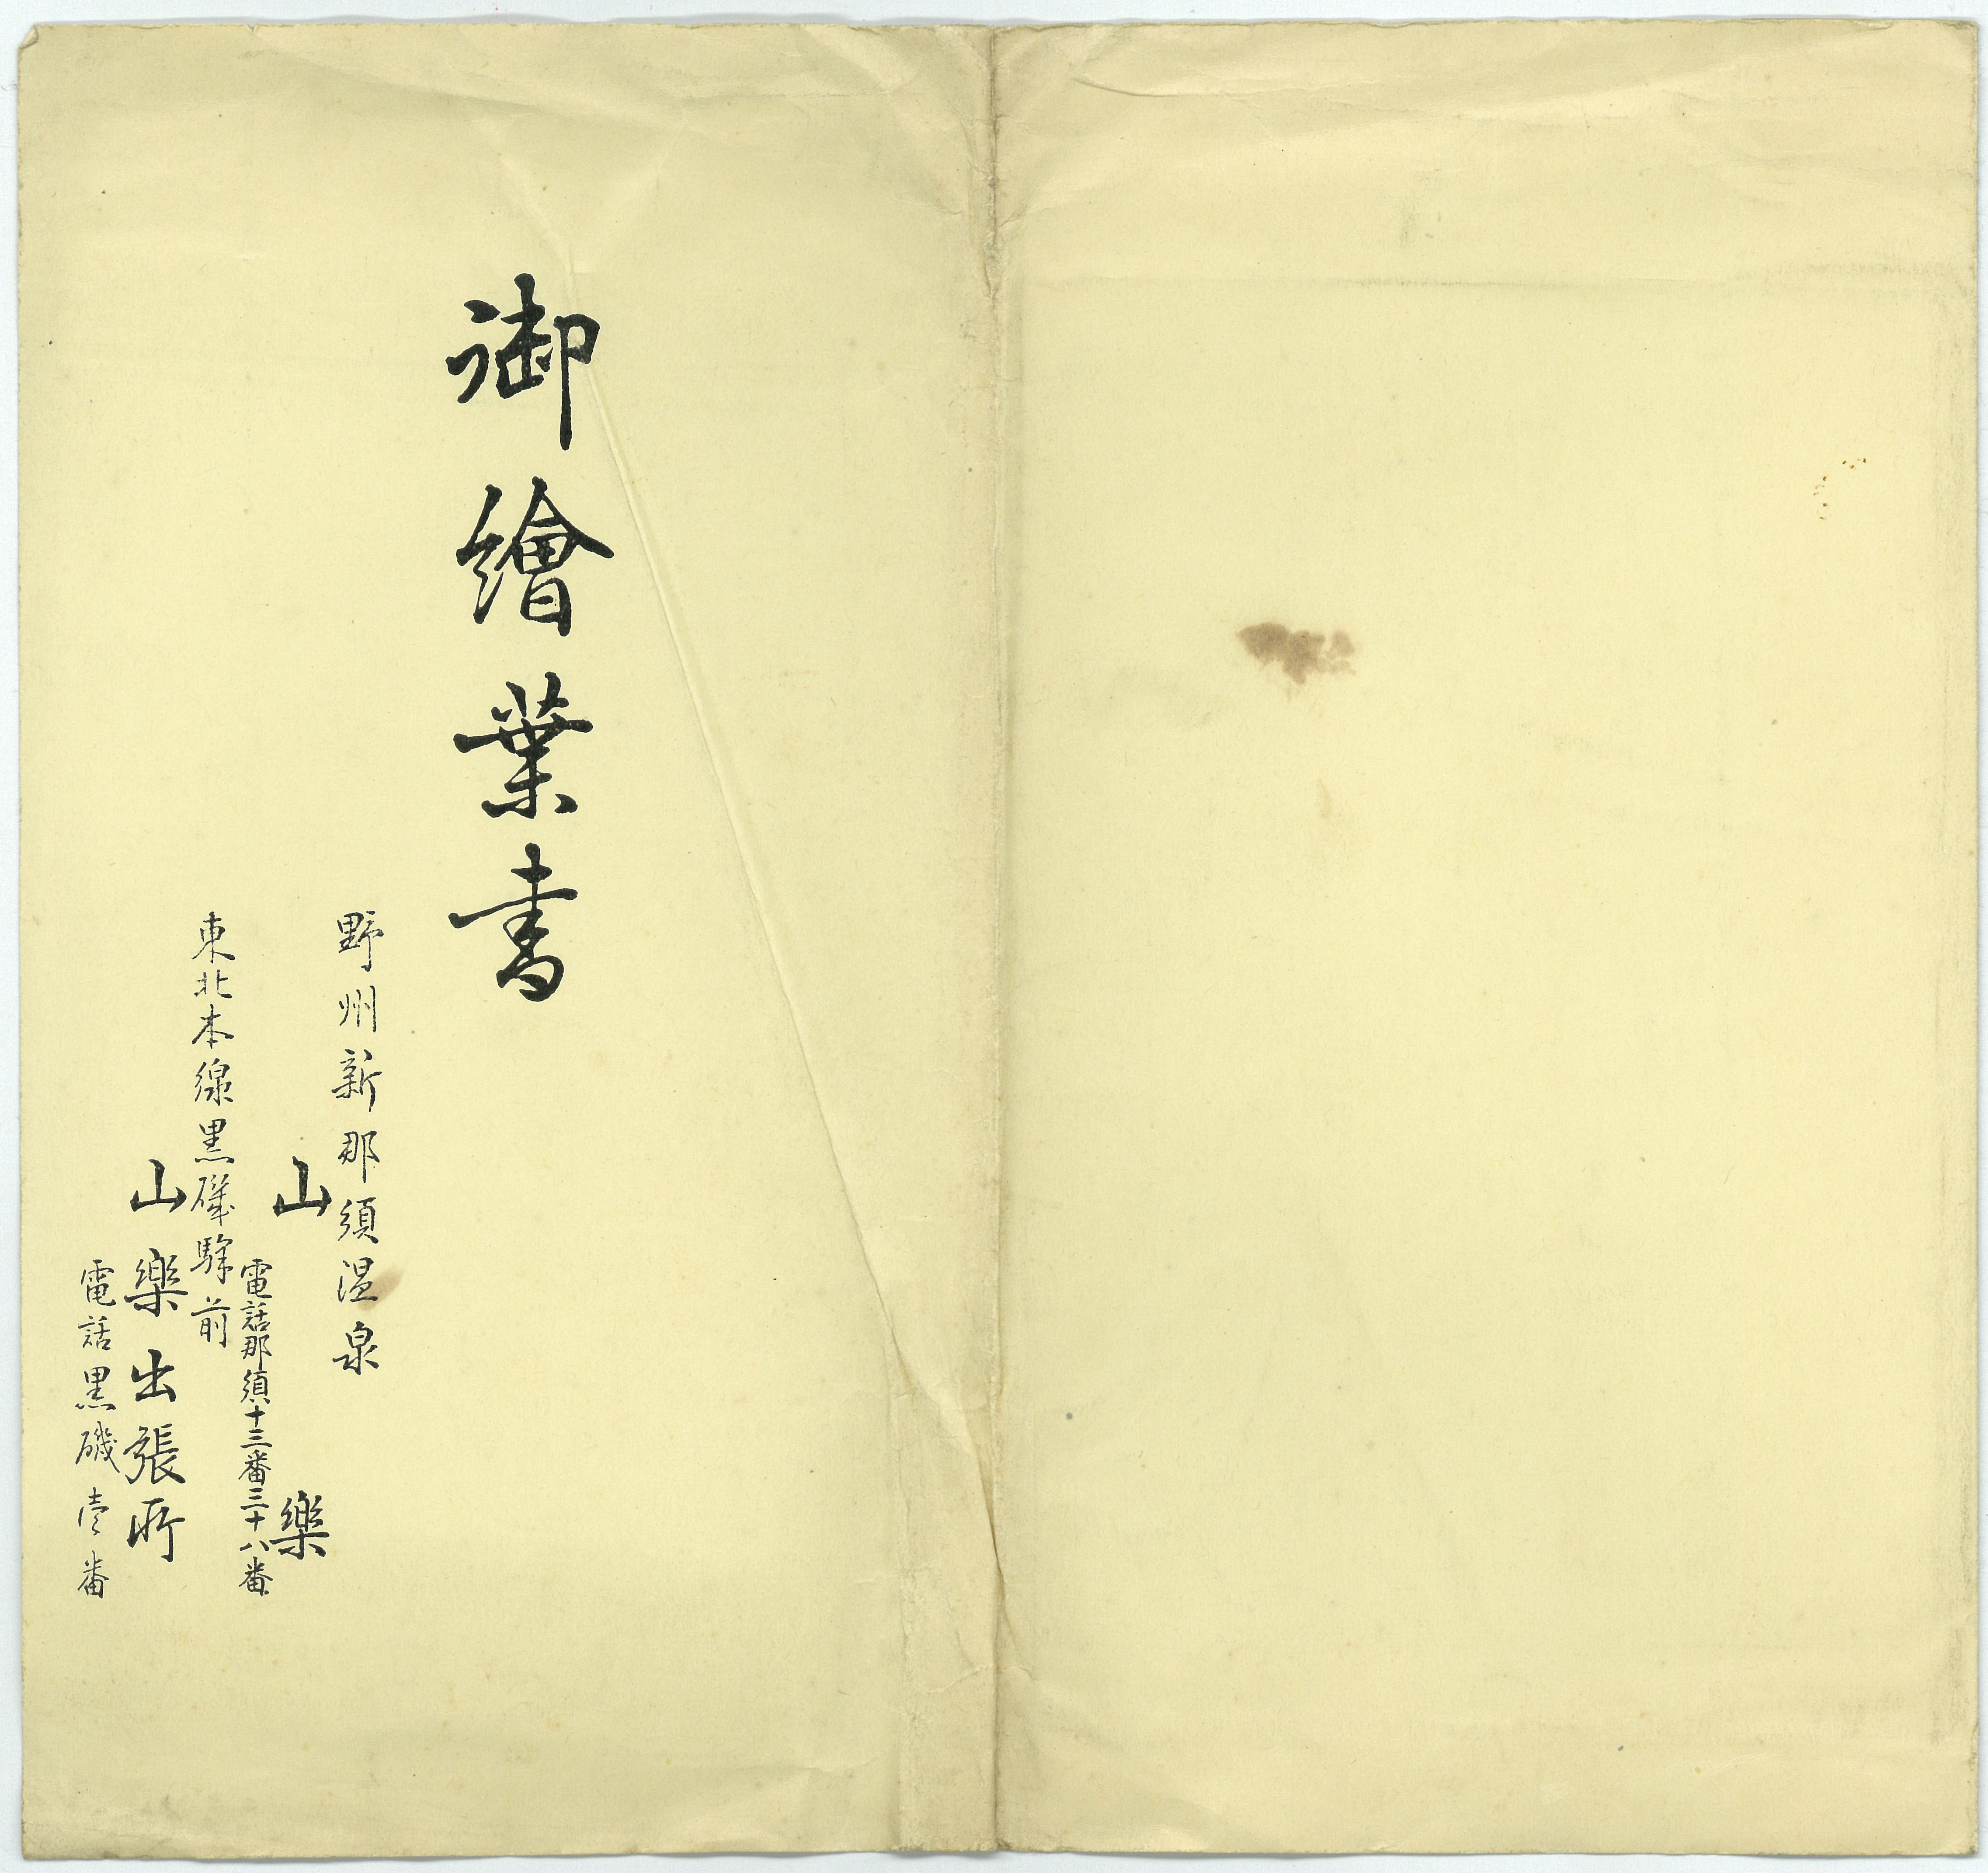 御繪葉書
野州新那須温泉
山樂
電話那須十三番三十八番
東北本線黒磯駅前
山樂出張所
電話黒磯壱番